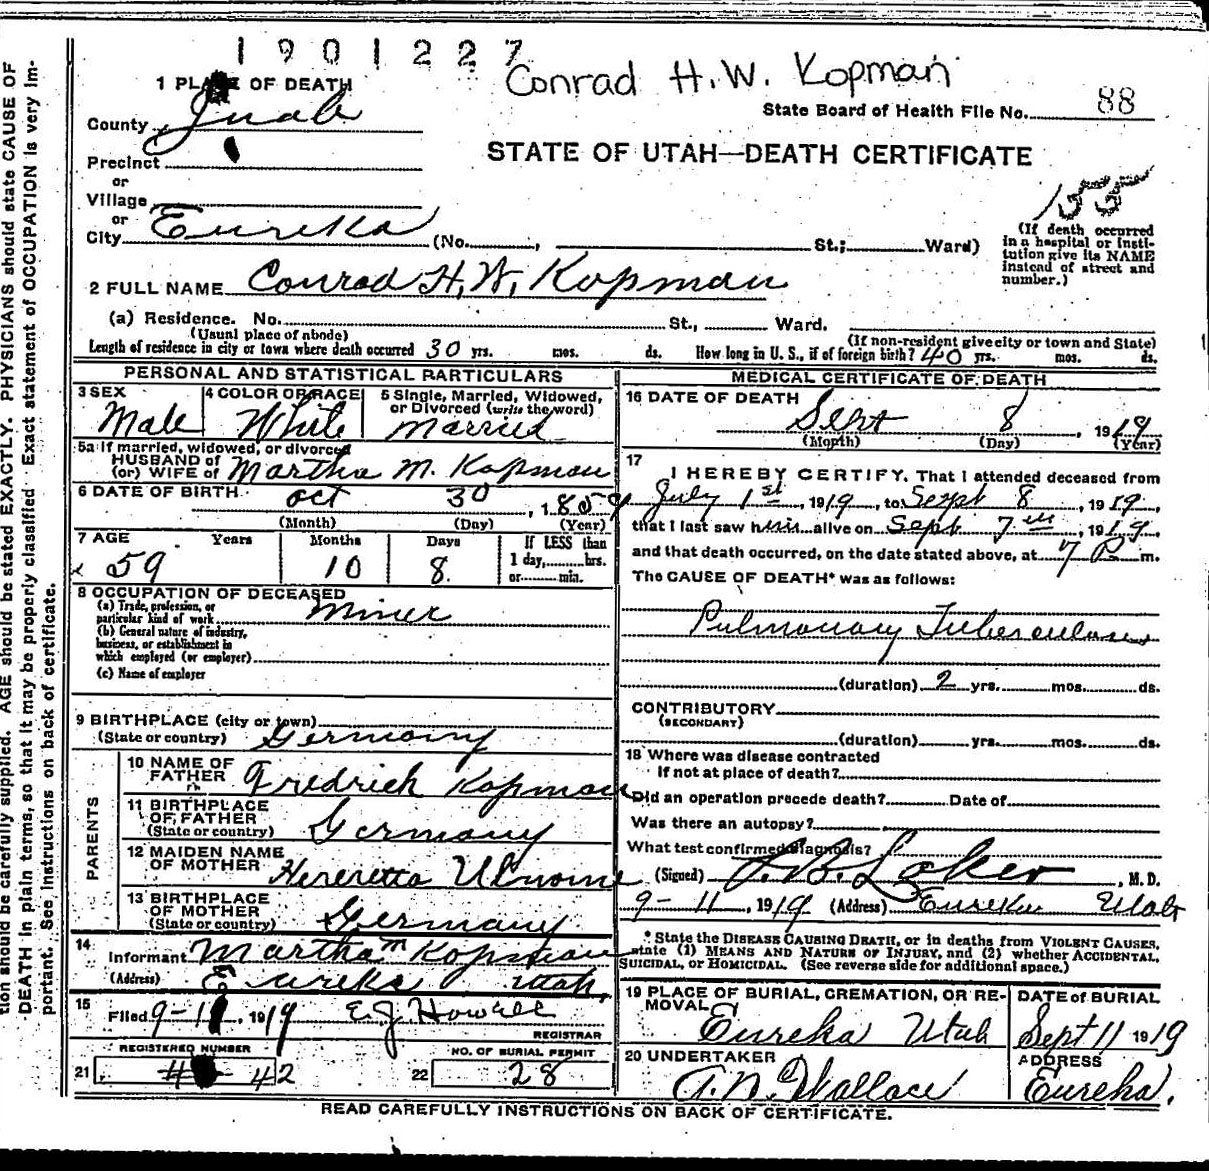 1901227
Conrad H.W. Kopman
1 PLACE OF DEATH
State Board of Health File No. 88
County Juab
STATE OF UTAH—DEATH CERTIFICATE
Precinct
or
Village
155
or
City Eureka (No. , St.; Ward)
(If death occurred
in a hospital or insti-
tution give its NAME
instead of street and
number.)
2 FULL NAME Conrad H. W. Kopman
(a) Residence. No. St., Ward.
(Usual place of abode) (If non-resident give city or town and State)
Length of residence in city or town where death occurred 30 yrs. mos. ds. How long in U. S., if of foreign birth? 40 yrs. mos. ds.
PERSONAL AND STATISTICAL PARTICULARS
3 SEX Male
4 COLOR OR RACE White
5 Single, Married, Widowed,
or Divorced (write the word)
Married
5a If married, widowed, or divorced
HUSBAND of
(or) WIFE of Martha M. Kopman
6 DATE OF BIRTH Oct 30, 1859
(Month) (Day) (Year)
7 AGE Years Months Days If LESS than
1 day, hrs.
59 10 8. or min.
8 OCCUPATION OF DECEASED
(a) Trade, profession, or
particular kind of work Miner
(b) General nature of industry,
business, or establishment in
which employed (or employer)
(c) Name of employer
9 BIRTHPLACE (city or town)
(State or country) Germany
PARENTS
10 NAME OF
FATHER Fredrich Kopman
11 BIRTHPLACE
OF FATHER
(State or country) Germany
12 MAIDEN NAME
OF MOTHER
13 BIRTHPLACE
OF MOTHER
(State or country) Germany
14
Informant Martha M Kopman
(Address) Eureka Utah.
15
Filed 9-11, 1919 E. J. Howell
REGISTRAR
REGISTERED NUMBER
21 42
NO. OF BURIAL PERMIT
22 28
MEDICAL CERTIFICATE OF DEATH
16 DATE OF DEATH
Sept 8, 1919
(Month) (Day) (Year)
17
I HEREBY CERTIFY, That I attended deceased from
July 1st, 1919, to Sept 8, 1919,
that I last saw him alive on Sept 7th, 1919
and that death occurred, on the date stated above, at 7 P m.
The CAUSE OF DEATH* was as follows:
Pulmonary Tuberculosis
(duration) 2 yrs. mos. ds.
CONTRIBUTORY
(SECONDARY)
(duration) yrs. mos. ds.
18 Where was disease contracted
if not at place of death?
Did an operation precede death? Date of
Was there an autopsy?
What test confirmed diagnosis?
(Signed) , M. D.
9-11, 1919 (Address) Eureka Utah
* State the DISEASE CAUSING DEATH, or in deaths from VIOLENT CAUSES,
state (1) MEANS AND NATURE OF INJURY, and (2) whether ACCIDENTAL,
SUICIDAL, or HOMICIDAL. (See reverse side for additional space.)
19 PLACE OF BURIAL, CREMATION, OR RE-
MOVAL
Eureka Utah
DATE of BURIAL
Sept 11 1919
20 UNDERTAKER
A. N. Wallace
ADDRESS
Eureka.
READ CAREFULLY INSTRUCTIONS ON BACK OF CERTIFICATE.
tion should be carefully supplied. AGE should be stated EXACTLY. PHYSICIANS should state CAUSE OF
DEATH in plain terms, so that it may be properly classified. Exact statement of OCCUPATION is very im-
portant. See instructions on back of certificate.